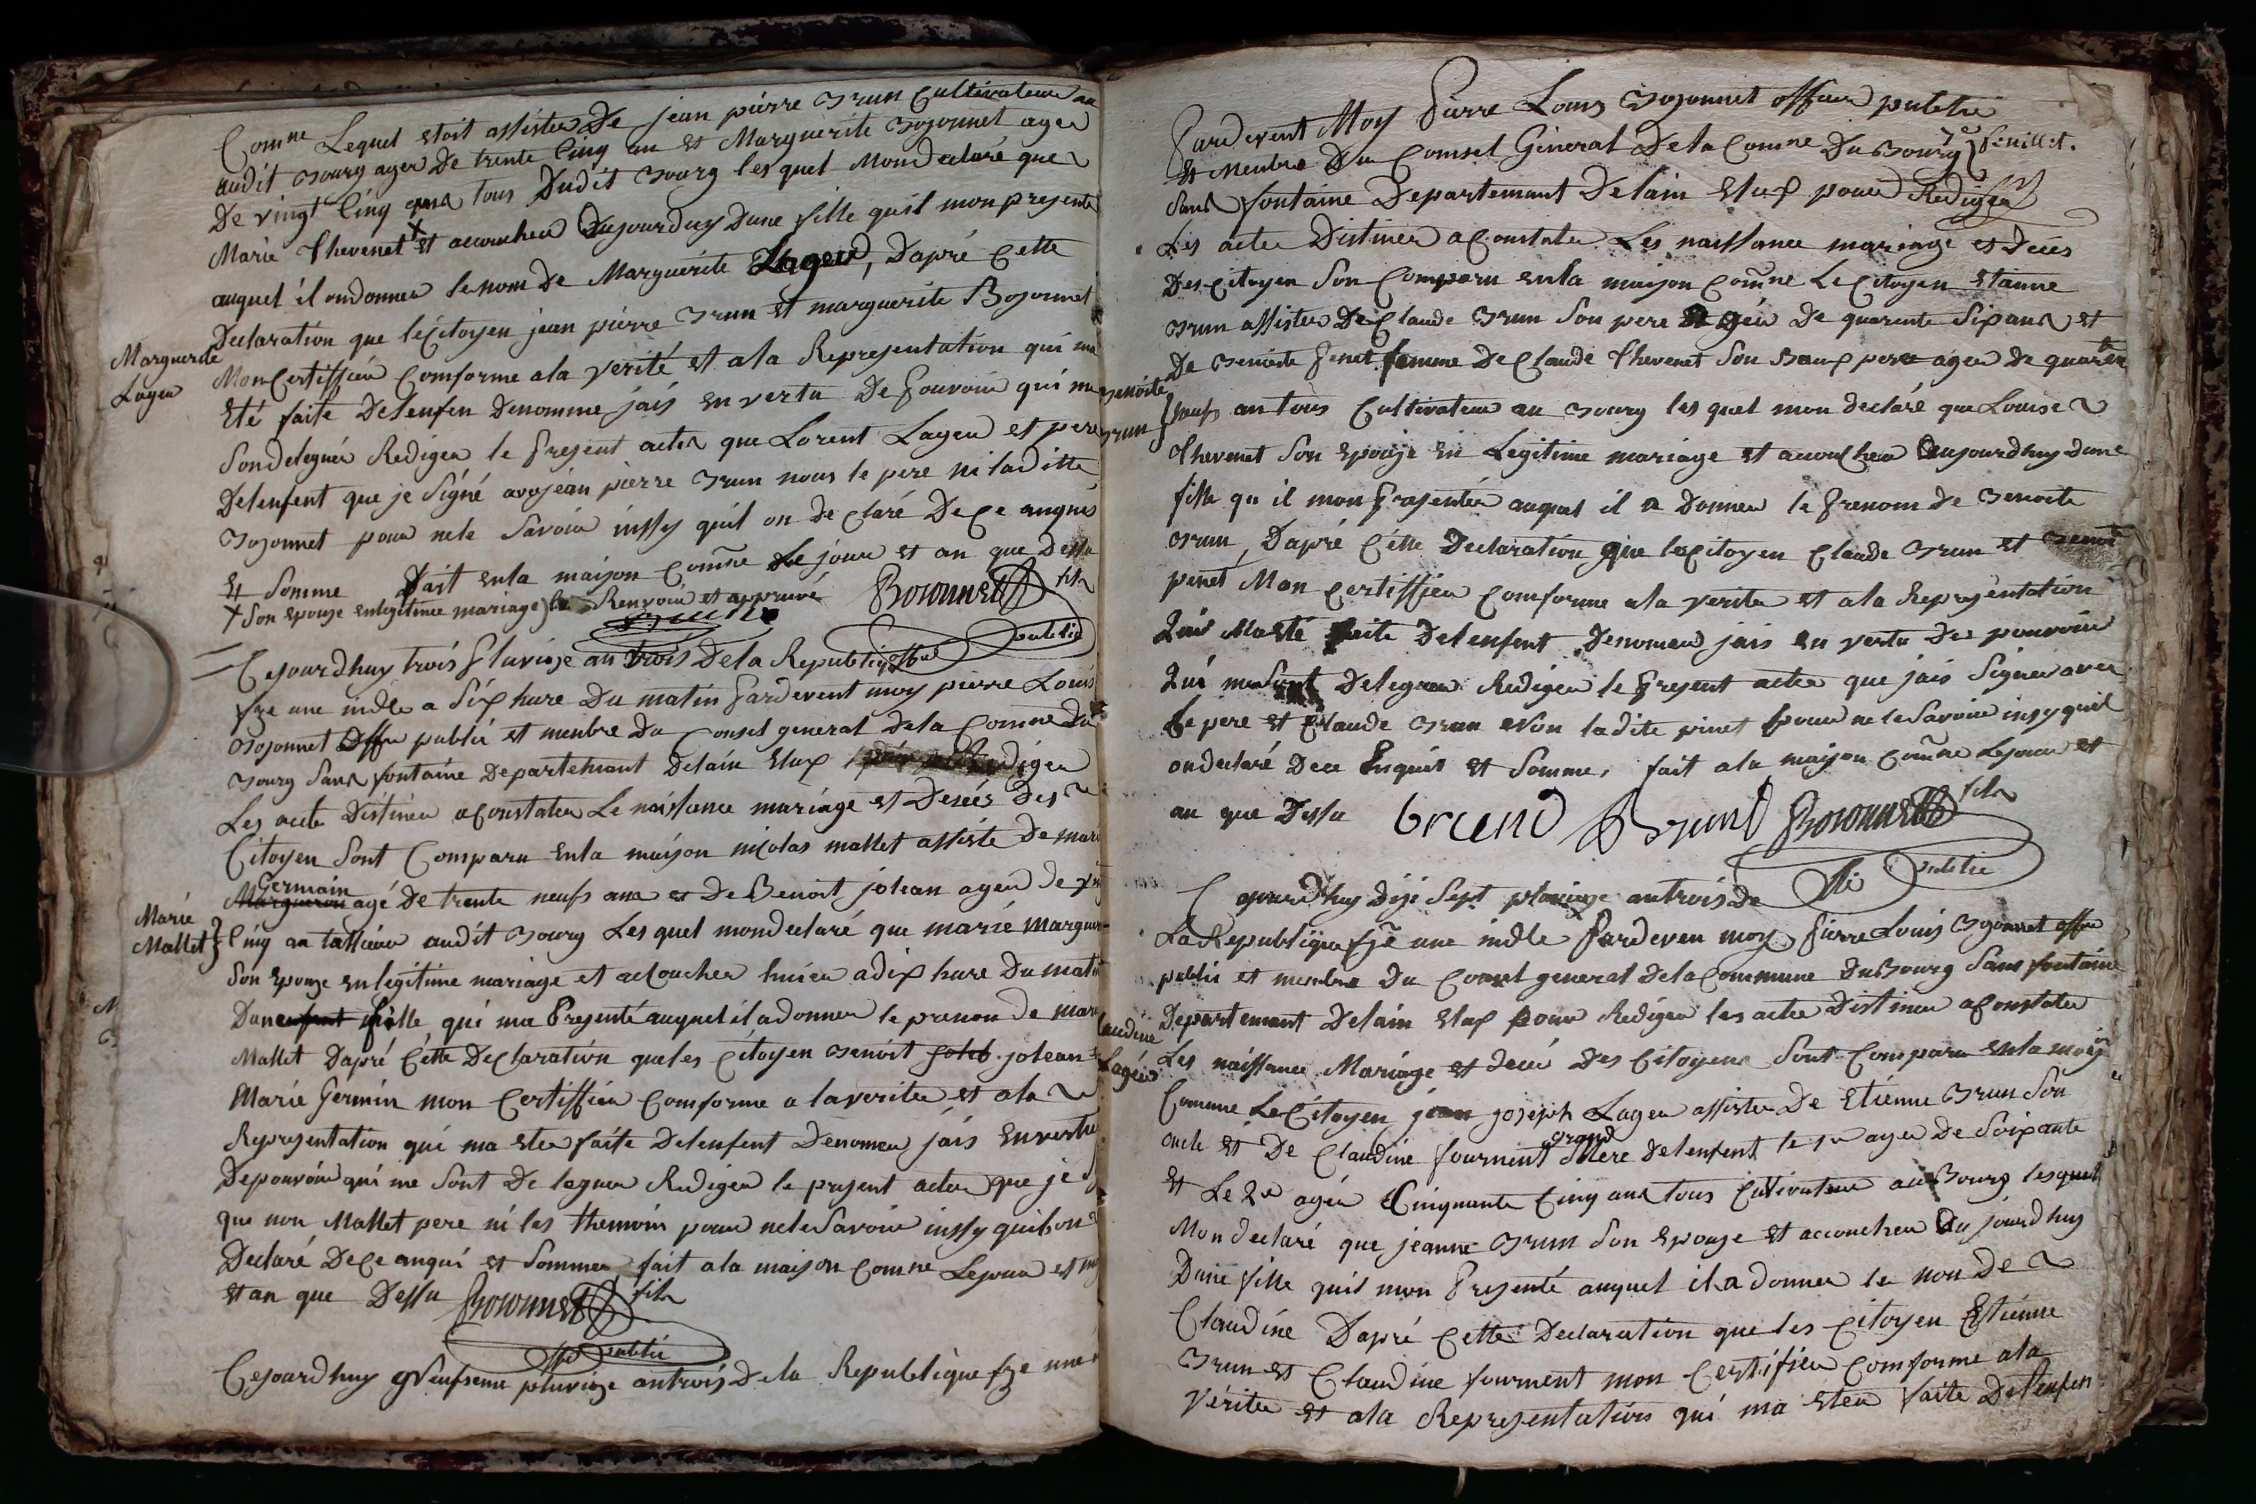 Comne Lequel etoit assister De jean pierre Brun Cultivateur au
audit Bourg ager De trente Cinq an et Marguerite Bozonnet ager
De vingt Cinq ans tous Dudit Bourg les quel Mon declaré que
Marie Thevenet + et accoucher Dujourduy Dune fille quil mon presenté
auquel il ondonner le nom De Marguerite Lager, Dapré Cette
Declaration que le Citoyen jean pierre Brun et marguerite Bozonnet
Marguerite
Lager
Mon Certiffier Comforme ala verité et ala Representation qui ma
Eté faite Delenfen Denomme jais en vertu De Pouvoir qui me
Sondeleguér Rediger le Present acter que Lorent Lager et pere
Delenfent que je Signé avejean pierre Brun nous le pere ni laditte
Bozonnet pour nele Savoir inssy quil on declaré De Ce anquis
Et Somme fait enla maison Comne Le jour et an que Dessu
+ Son Epouze enlegitime mariage le Renvoie et apprové Bozonnet fils
publie
Cejourdhuy trois Pluvioze an trois Dela Republiq
fze une indle a Six hure Du matin Pardevent moy pierre Louis
Bozonnet Offer publie et menbre Du Consel general dela Comne Du
Bourg Sans fontaine Departement Delain Elux pour Rediger
Les acte Distiner aConstater Le naissance mariage et Desées Des
Citoyen Sont Comparu enla maison nicolas mallet assiste De marie
Germain
Margueron agé De trente neufs ans et De Benoit jolean ager de vin
Marie
Mallet
Cinq an tallieur audit Bourg Lesquel mondeclaré que marie margueron
Son Epouze en legitime mariage et accoucher hièer adix hure Du matin
Dun enfent fille qui ma Presenté auquel il adonner le prenon de marie
Mallet Dapré Cette Declaration que les Citoyen Benoit joleb jolean et
Marie Germin mon Certiffier Comforme a laverite et ala
Representation qui ma Eter faite Delenfent Denomer jais En vertu
Depouvoir qui me Sont Deleguer Rediger le present acter que je
que non Mallet pere ni les themoin pour nele Savoir inssy quilon
Declaré DeCe anqui et Sommer fait ala maison Comne Lejour et
et an que Dessu Bozonnet fils
offer publie
Cejourdhuy Neufieme pluvioze antrois Dela Republique fze une
Pardevent Moy Pierre Louis Bozonnet offier publie
7e feuillet.
Et Menbre Du Comsel General De la Comne Du Bourg
Sans fontaine Departement Delain Elux pour Rediger
Les acter Distiner aConstater Les naissance mariage et déces
Des Citoyen Son Comparu enla maison Comne Le Citoyen Etienne
Brun assister De Claude Brun Son pere Agér De quarente Six ans et
De Benoite Penet femme De Claude Thevenet Son Baux pere ager de quarente
Benoite
Brun
neufs an tous Cultivateur au Bourg les quel mon declaré que Louise
Thevenet Son Epouze En Legitime mariage et accoucher Aujourdhuy Dune
fille qu il mon Presentér auquel il a Donner le Prenom de Benoite
Brun, Dapré Cette Declaration que le Citoyen Claude Brun et Benoite
penet Mon Certiffier Comforme ala verite et ala Representation
Qui Ma été faite Delenfent Denomer jais en vertu Des pouvoir
Qui me Sont Deleguer Rediger le Present acter que jais Signer avec
Le pere et Claude Brun Non ladite pinet pour ne le Savoir insy quil
ondeclaré Dece Enquit et Somme, fait ala maison Comne Lejour et
an que Dessu brund Brund Bozonnet fils
offi publie
Cejourdhuy Dize Sept pluvioze antrois De
La Republique fze une indle Pardeven moy Pierre Louis Bozonnet offer
publie et membre Du Consel general dela Commune Du Bourg Sans fontaine
Claudine
Lager
Departement Delain Elux pour Rediger les acter Distiner aConstater
Les naissance Mariage et decer Des Citoyens Sont Comparu enla maison
Comune Le Citoyen jean joseph Lager assister De Etienne Brun Son
oncle et De Claudine fournent grand Mere Delenfent le 1er ager De Soixante
et Le 2e agér Cinquante Cinq ans tous Cultivateur au Bourg lesquel
Mondeclaré que jeanne Brun Son Epouze et accoucher Du jourdhuy
Dune fille quil mon Presenté auquel il a donner le non De
Claudine Dapré Cette Declaration que les Citoyen Etienne
Brun et Claudine fournent mon Certifier Comforme ala
Vériter et ala Representation qui ma Eter faite Delenfen